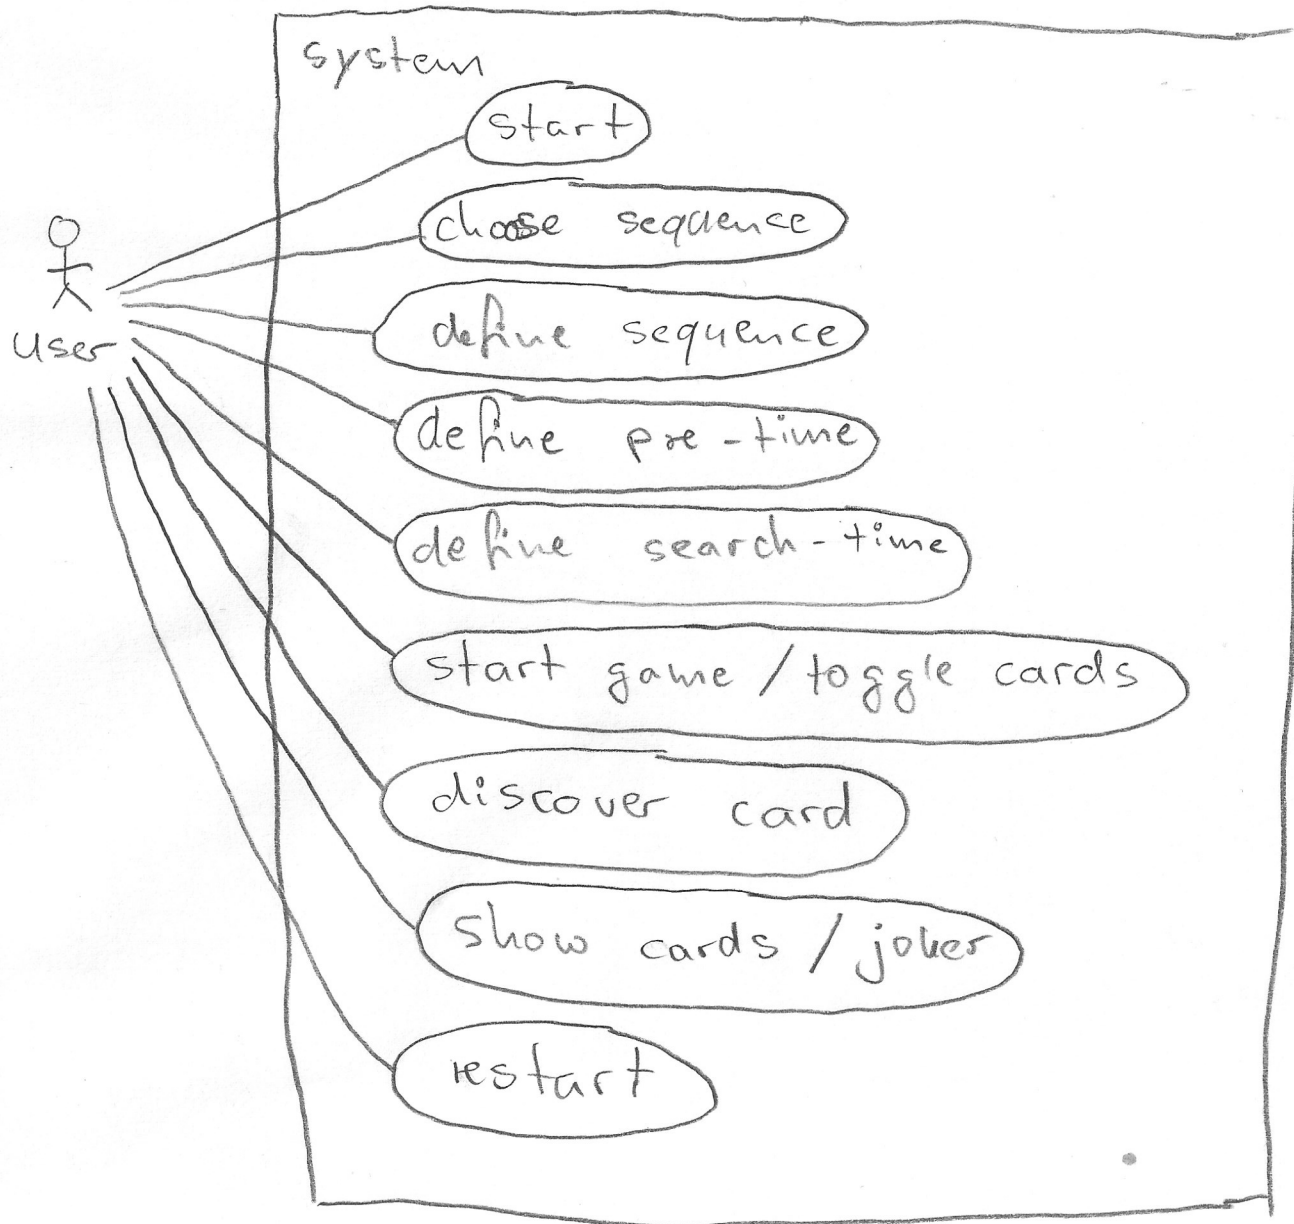 system
start
choose sequence
define sequence
user
define pre-time
define search-time
start game / toggle cards
discover card
show cards / joker
restart